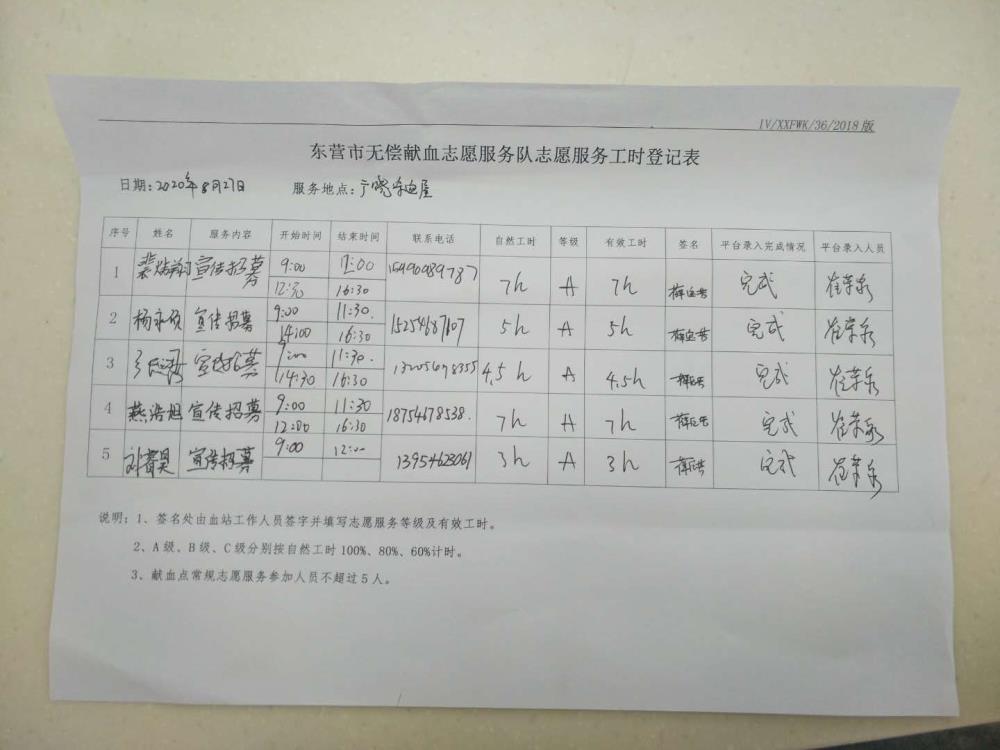 IV/XXFWK/36/2018版
东营市无偿献血志愿服务队志愿服务工时登记表
日期:2020年8月27日 服务地点:广饶
序号 姓名 服务内容 开始时间 结束时间 联系电话 自然工时 等级 有效工时 签名 平台录入完成情况 平台录入人员
1 宣传招募 9:00 7h A 7h 完成 崔荣泉
16:30
2 杨永硕 宣传招募 9:00 11:30. 15254687107 5h A 5h 完成 崔荣泉
14:00 16:30
3 宣传招募 9:00 11:30. 4.5h A 4.5h 完成 崔荣泉
14:30 16:30
4 燕浩旭 宣传招募 9:00 11:30 18754678538. 7h A 7h 完成 崔荣泉
12:00 16:30
5 宣传招募 9:00 12:00 13954623061 3h A 3h 完成 崔荣泉
说明:1、签名处由血站工作人员签字并填写志愿服务等级及有效工时。
2、A级、B级、C级分别按自然工时100%、80%、60%计时。
3、献血点常规志愿服务参加人员不超过5人。